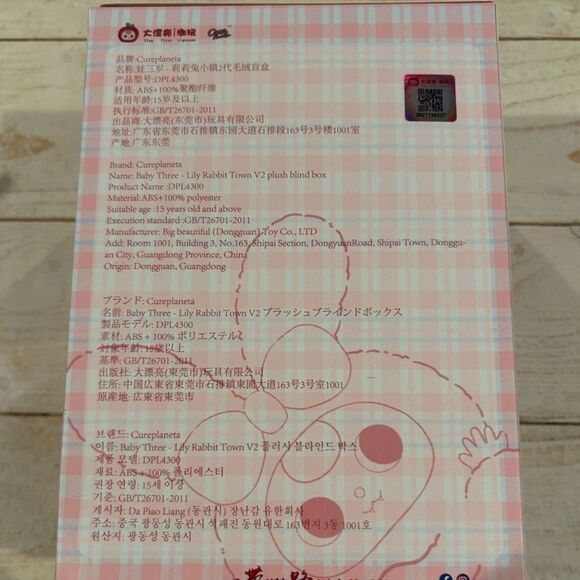 大漂亮 | 咖玩
品牌:Cureplaneta
名称:娃三岁 - 莉莉兔小镇2代毛绒盲盒
产品型号:DPL4300
材质: ABS+100%聚酯纤维
适用年龄:15岁及以上
执行标准:GB/T26701-2011
出品商:大漂亮(东莞市)玩具有限公司
地址:广东省东莞市石排镇东园大道石排段163号3号楼1001室
产地:广东东莞
Brand: Cureplaneta
Name: Baby Three - Lily Rabbit Town V2 plush blind box
Product Name :DPL4300
Material:ABS+100% polyester
Suitable age :15 years old and above
Execution standard :GB/T26701-2011
Manufacturer: Big beautiful (Dongguan) Toy Co., LTD
Add: Room 1001, Building 3, No.163, Shipai Section, DongyuanRoad, Shipai Town, Donggu-
an City, Guangdong Province, China
Origin: Dongguan, Guangdong
ブランド: Cureplaneta
名前: Baby Three - Lily Rabbit Town V2 プラッシュブラインドボックス
製品モデル: DPL4300
素材: ABS + 100% ポリエステル
対象年齢: 15歳以上
基準: GB/T26701-2011
出版社: 大漂亮(東莞市)玩具有限公司
住所: 中国広東省東莞市石排鎮東園大道163号3号室1001
原産地: 広東省東莞市
브랜드: Cureplaneta
이름: Baby Three - Lily Rabbit Town V2 플러시 블라인드 박스
제품 모델: DPL4300
재료: ABS + 100% 폴리에스터
권장 연령: 15세 이상
기준: GB/T26701-2011
게시자: Da Piao Liang (동관시) 장난감 유한회사
주소: 중국 광동성 동관시 석패진 동원대로 163번지 3동 1001호
원산지: 광동성 동관시